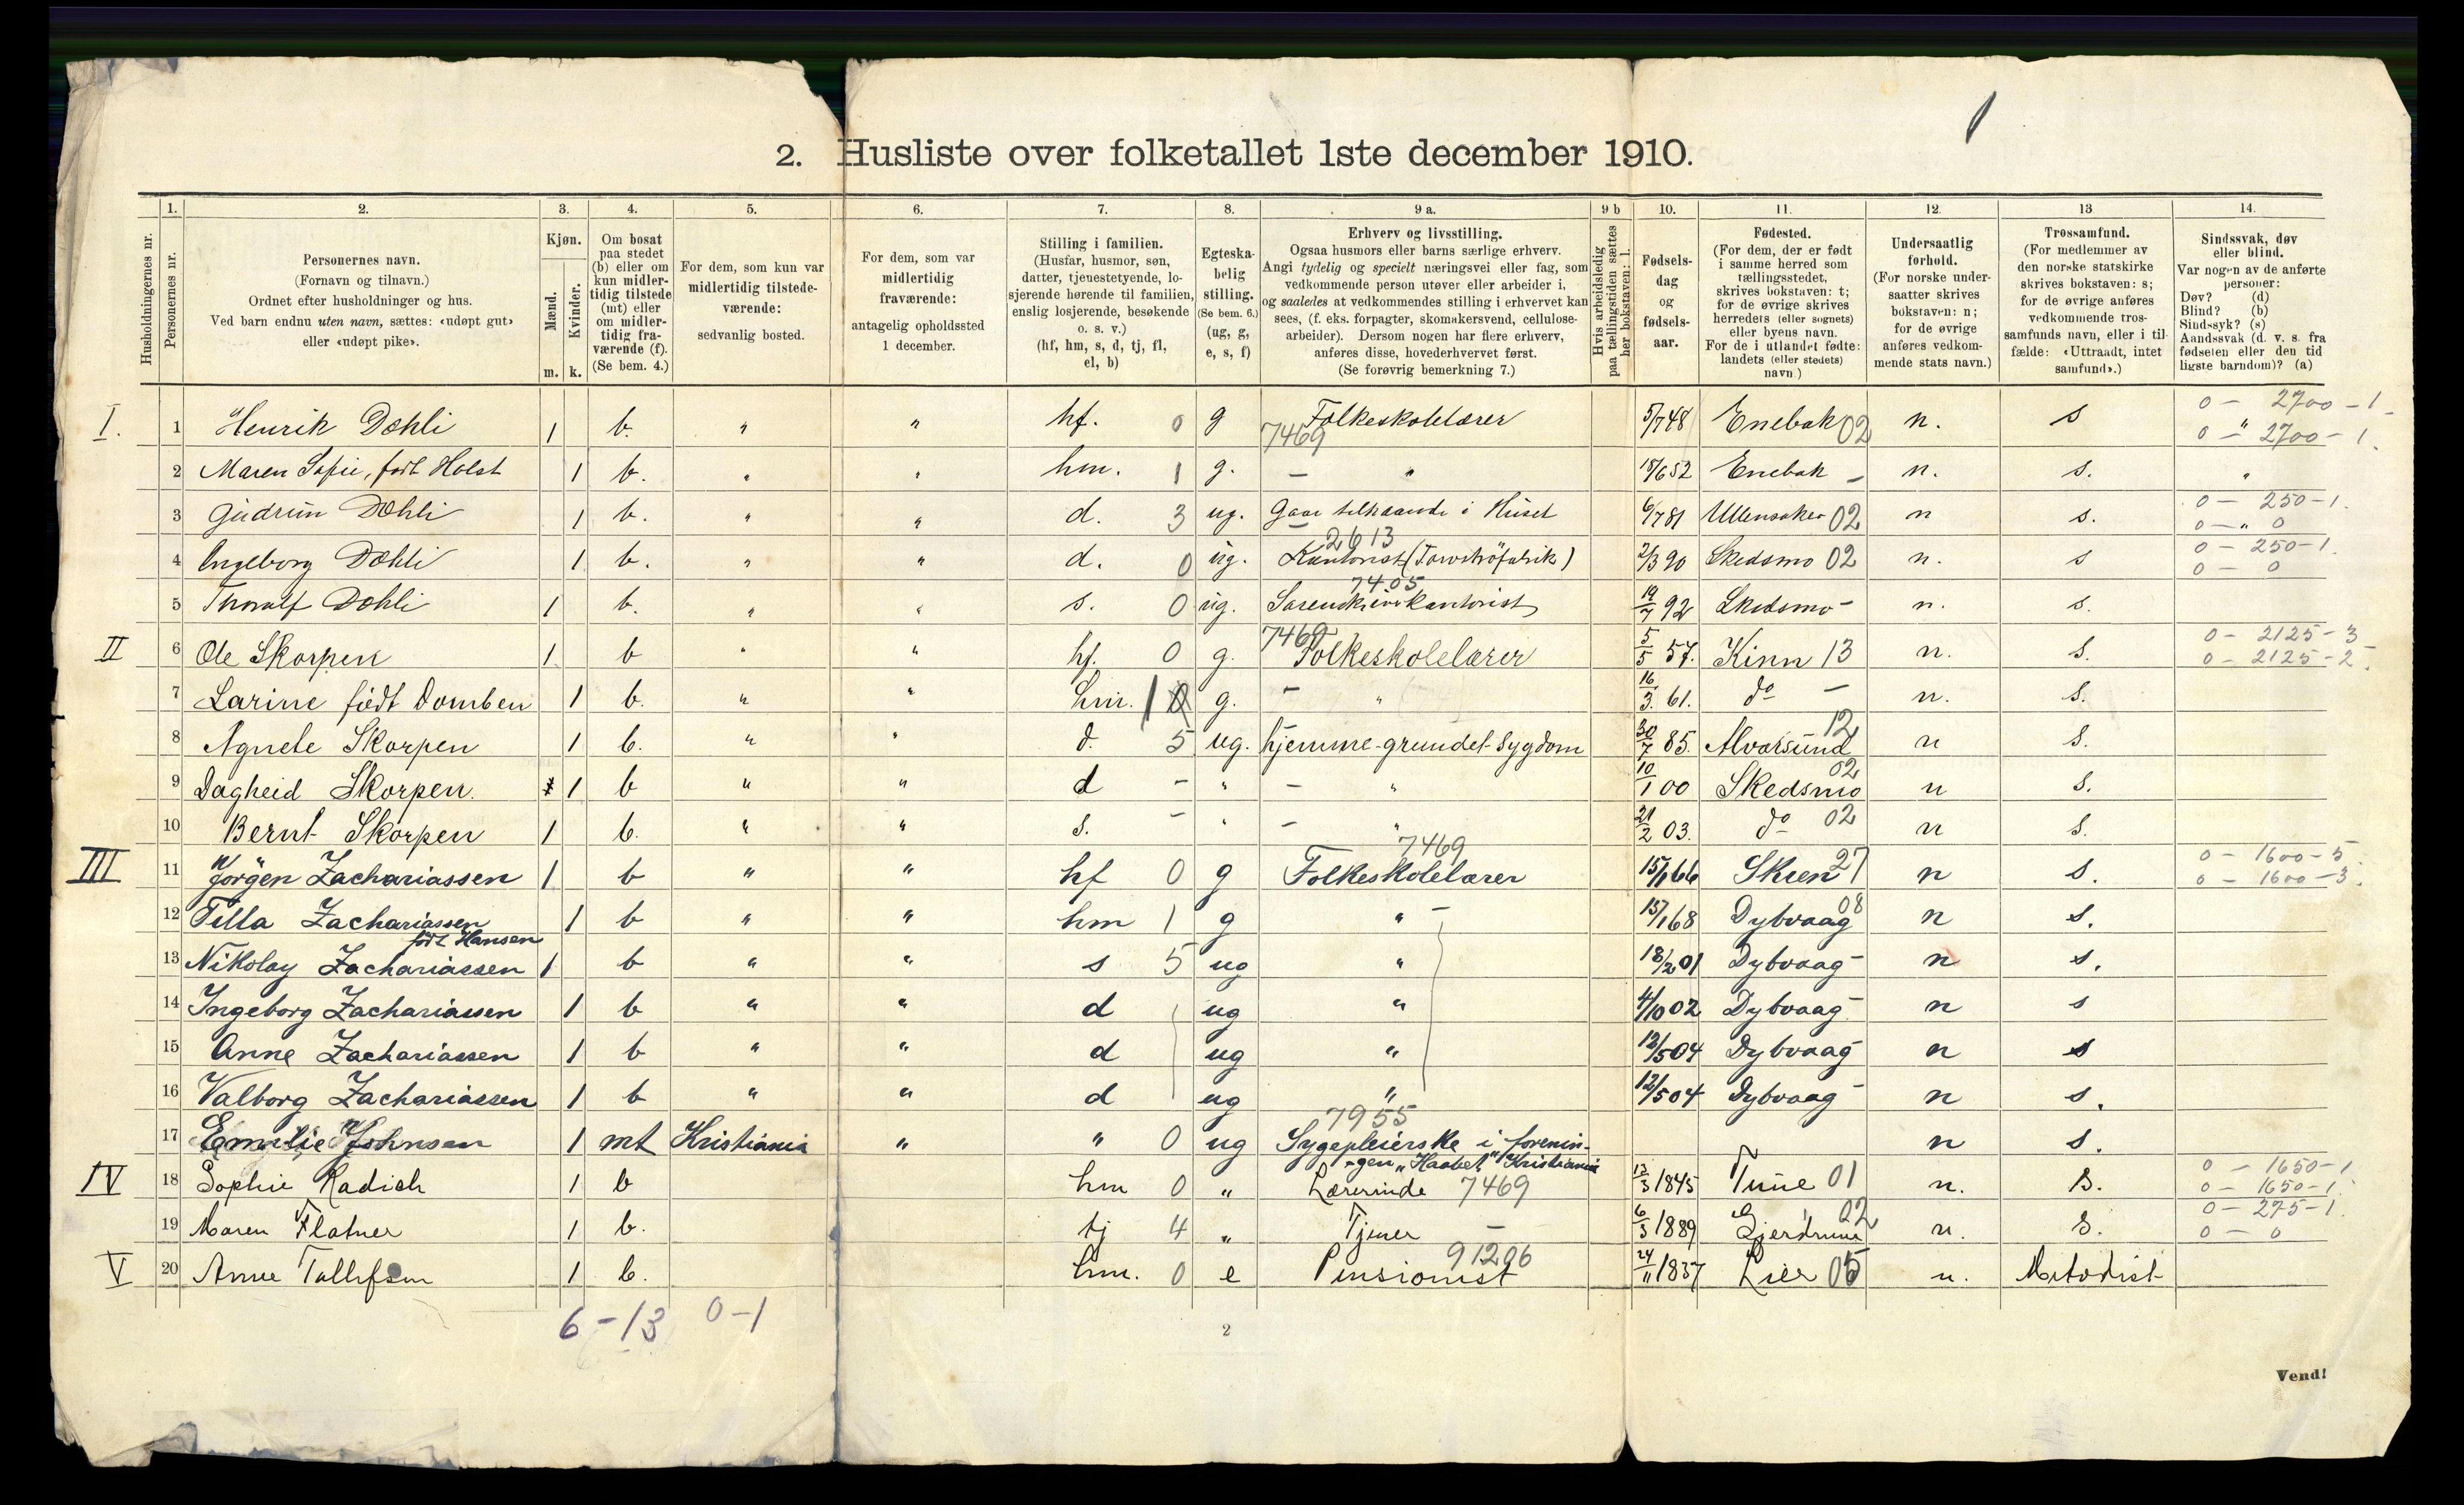 2. Husliste over folketallet 1ste december 1910.
Husholdningernes nr.
1. Personernes nr.
2. Personernes navn.
(Fornavn og tilnavn.)
Ordnet efter husholdninger og hus.
Ved barn endnu uten navn, sættes: «udøpt gut»
eller «udøpt pike».
3. Kjøn.
Mænd. Kvinder.
m. k.
4. Om bosat
paa stedet
(b) eller om
kun midler-
tidig tilstede
(mt) eller
om midler-
tidig fra-
værende (f).
(Se bem. 4.)
5. For dem, som kun var
midlertidig tilstede-
værende:
sedvanlig bosted.
6. For dem, som var
midlertidig
fraværende:
antagelig opholdssted
1 december.
7. Stilling i familien.
(Husfar, husmor, søn,
datter, tjenestetyende, lo-
sjerende hørende til familien,
enslig losjerende, besøkende
o. s. v.)
(hf, hm, s, d, tj, fl,
el, b)
8. Egteska-
belig
stilling.
(Se bem. 6.)
(ug, g,
e, s, f)
9 a. Erhverv og livsstilling.
Ogsaa husmors eller barns særlige erhverv.
Angi tydelig og specielt næringsvei eller fag, som
vedkommende person utøver eller arbeider i,
og saaledes at vedkommendes stilling i erhvervet kan
sees, (f. eks. forpagter, skomakersvend, cellulose-
arbeider). Dersom nogen har flere erhverv,
anføres disse, hovederhvervet først.
(Se forøvrig bemerkning 7.)
9 b Hvis arbeidsledig
paa tællingstiden sættes
her bokstaven: l.
10. Fødsels-
dag
og
fødsels-
aar.
11. Fødested.
(For dem, der er født
i samme herred som
tællingsstedet,
skrives bokstaven: t;
for de øvrige skrives
herredets (eller sognets)
eller byens navn.
For de i utlandet fødte:
landets (eller stedets)
navn.)
12. Undersaatlig
forhold.
(For norske under-
saatter skrives
bokstaven: n;
for de øvrige
anføres vedkom-
mende stats navn.)
13 Trossamfund.
(For medlemmer av
den norske statskirke
skrives bokstaven: s;
for de øvrige anføres
vedkommende tros-
samfunds navn, eller i til-
fælde: «Uttraadt, intet
samfund».)
14. Sindssvak, døv
eller blind.
Var nogen av de anførte
personer:
Døv? (d)
Blind? (b)
Sindssyk? (s)
Aandssvak (d. v. s. fra
fødselen eller den tid
ligste barndom)? (a)
I. 1 Henrik Dæhli 1 b. " " hf. 0 g 7469 Folkeskolelærer 5/7 48 Enebak 02 n. s 0 – 2700 – 1 0 – " 2700 – 1.
2 Maren Sofie, født Holst 1 b. " " hm. 1 g. – " 18/6 52 Enebak – n. s. "
3 Gudrun Dæhli 1 b. " " d. 3 ug. Gaar tilhaande i Huset 6/7 81 Ullensaker 02 n s. 0 – 250 – 1. 0 – " 0
4 Ingeborg Dæhli 1 b. " " d. 0 ug. 2613 Kontorist (Torvströfabrik) 2/3 90 Skedsmo 02 n. s 0 – 250 – 1. 0 – 0
5 Thoralf Dæhli 1 b. " " s. 0 ug. 7405 Sorenskriverkontorist 19/7 92 Skedsmo – n. s.
II 6 Ole Skorpen 1 b " " hf. 0 g. 7469 Folkeskolelærer 5/5 57. Kinn 13 n. s. 0 – 2125 – 3 0 – 2125 – 2.
7 Larine født Domben 1 b. " " hm. 1 0 g. – " 16/3. 61. do – n. s.
8 Agnete Skorpen 1 b. " " d. 5 ug. hjemme grundet Sygdom 30/7 85. Alvorsund 12 n s.
9 Dagheid Skorpen. 1 b " " d – " – " 10/1 00 Skedsmo 02 n s.
10 Bernt Skorpen 1 b. " " s. – " – " 21/2 03. do 02 n s.
III 11 Jörgen Zachariassen 1 b " " hf 0 g 7469 Folkeskolelærer 15/1 66 Skien 27 n s. 0 – 1600 – 5. 0 – 1600 – 3.
12 Tilla Zachariassen født Hansen 1 b " " hm 1 g " – 15/1 68 Dybvaag 08 n s.
13 Nikolay Zachariassen 1 b " " s 5 ug " 18/2 01 Dybvaag – n s.
14 Ingeborg Zachariassen 1 b " " d ug " 4/10 02 Dybvaag – n s
15 Anne Zachariassen 1 b " " d ug " 12/5 04 Dybvaag – n s
16 Valborg Zachariassen 1 b " " d ug " 12/5 04 Dybvaag – n s.
17 Emilie Johnsen 1 mt Kristiania " " 0 ug 7955 Sygepleierske i forenin-
gen "Haabet" Kristiania n s.
IV 18 Sophie Radich 1 b hm 0 " Lærerinde 7469 13/3 1845 Tune 01 n. s. 0 – 1650 – 1 0 – 1650 – 1.
19 Maren Flatner 1 b. tj 4 " Tjener – 6/3 1889 Gjerdrum 02 n. s. 0 – 275 – 1. 0 – 0
V 20 Anne Tollefsen 1 b. hm. 0 e Pensionist 91206 24/11 1837 Lier 05 n. Metodist
6 – 13 0 – 1
2
Vend!